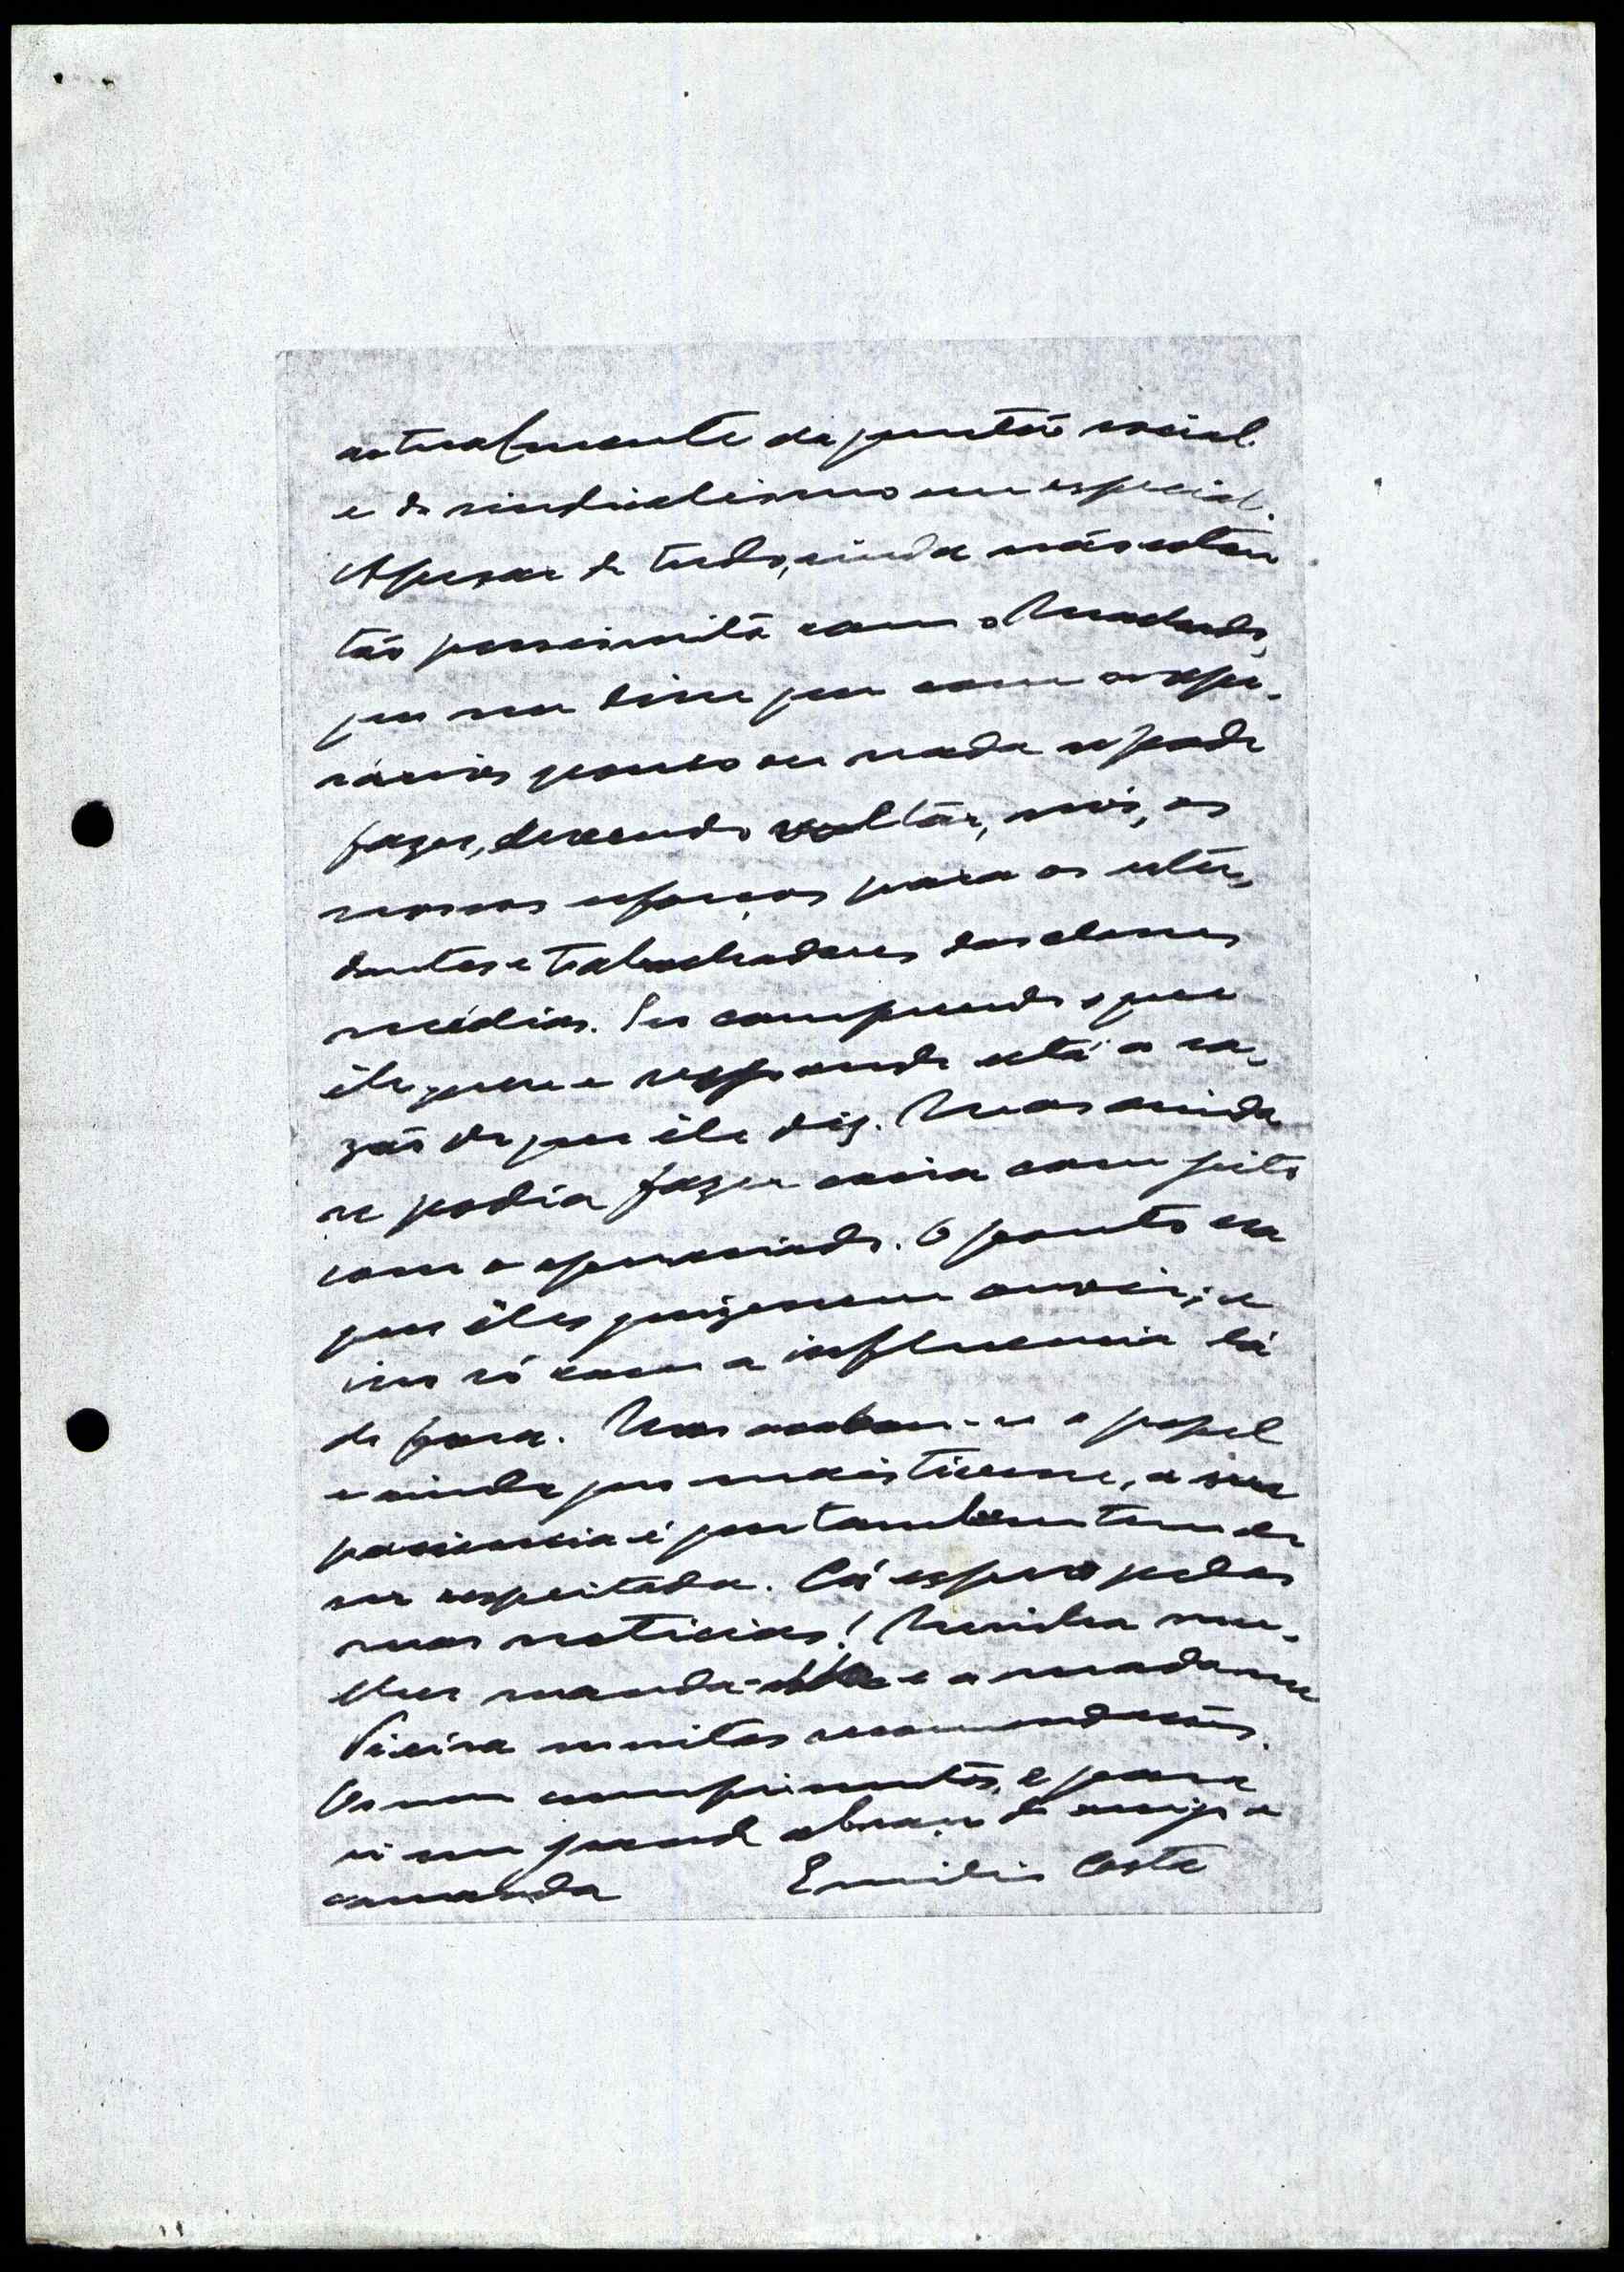 actualmente da questão social
e do sindicalismo em especial.
Apesar de tudo, ainda não estou
tão pessimista como o Machado,
que me disse que com os ope-
rários pouco ou nada se pode
fazer, devendo voltar, nós, os
nossos esforços para os estu-
dantes e trabalhadores das classes
médias. Eu compreendo o que
êle quere e responde está a ra-
zão do que êle diz. Mas ainda
se podia fazer coisa com geito
com o operariado. O ponto era
que êles quizessem ouvir; e
isso só com a influencia lá
de fora. Mas acabou-se o papel
e ainda que mais tivesse, a sua
paciencia é que tambem tem de
ser respeitada. Cá espero pelas
suas noticias! Minha mu-
lher manda-lhe e a madame
Vieira muitas recomendações.
Os meus cumprimentos, e para
si um grande abraço do amigo e
camarada Emilio Costa